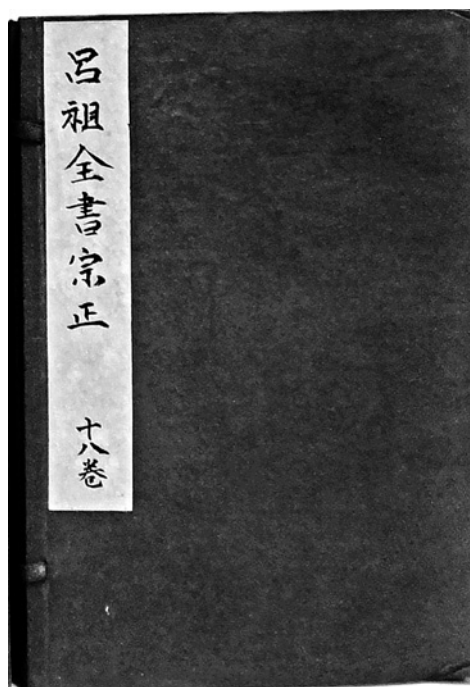 呂祖全書宗正
十八卷